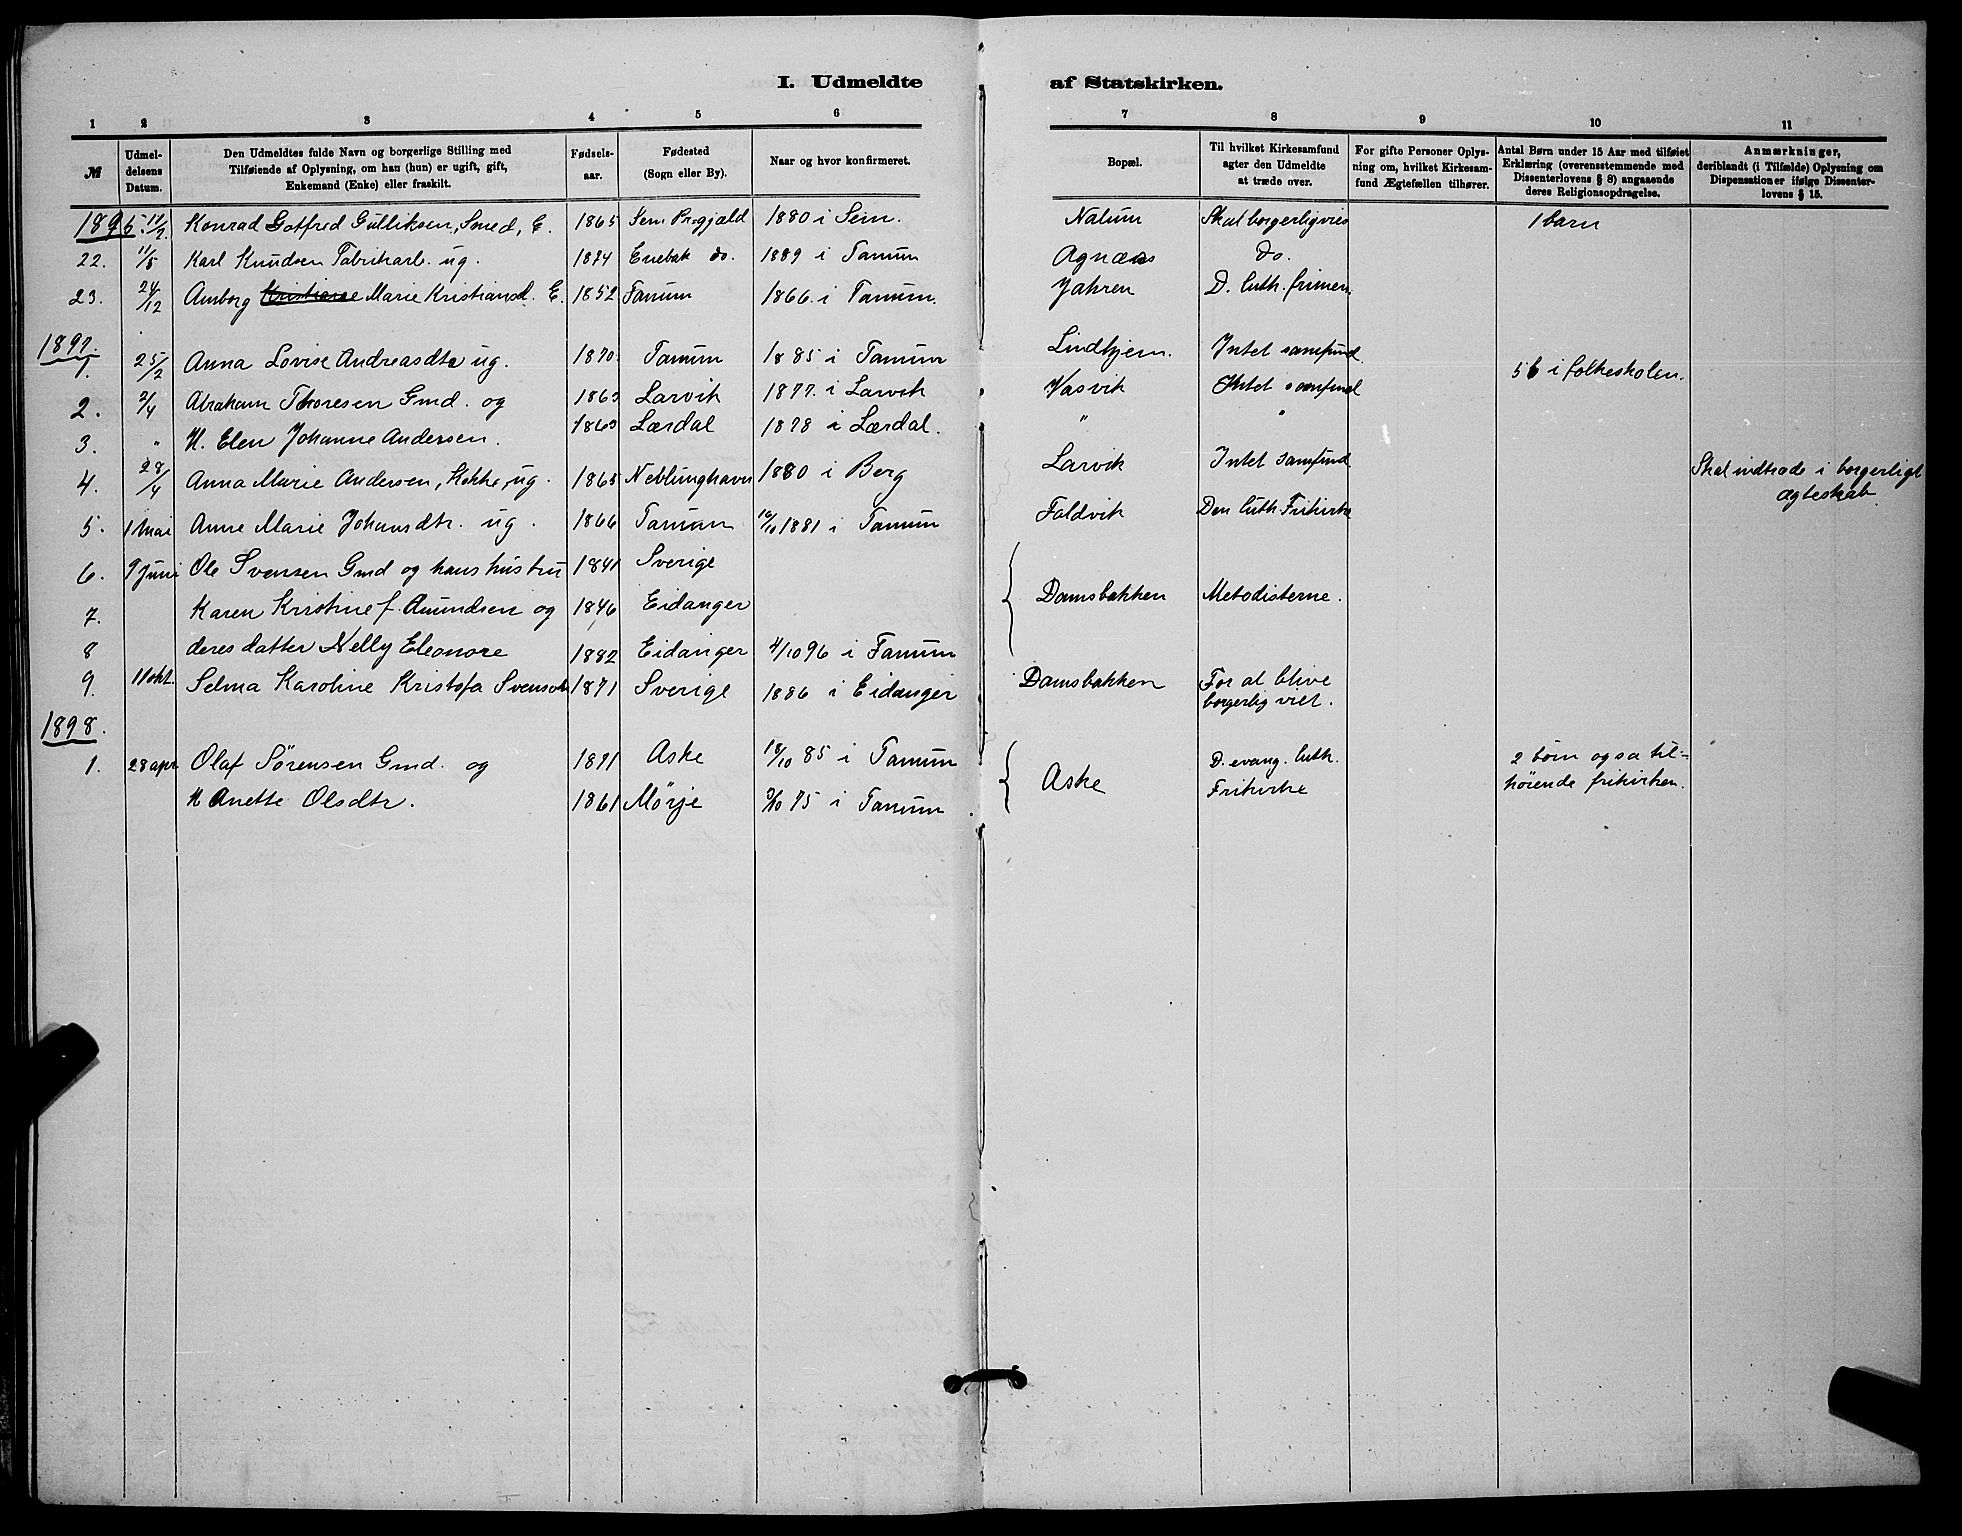 I. Udmeldte af Statskirken.
1 2 3 4 5 6 7 8 9 10 11
№
Udmel-
delsens
Datum.
Den Udmeldtes fulde Navn og borgerlige Stilling med
Tilføiende af Oplysning, om han (hun) er ugift, gift,
Enkemand (Enke) eller fraskilt.
Fødsels-
aar.
Fødested
(Sogn eller By).
Naar og hvor konfirmeret.
Bopæl.
Til hvilket Kirkesamfund
agter den Udmeldte
at træde over.
For gifte Personer Oplys-
ning om, hvilket Kirkesam-
fund Ægtefællen tilhører.
Antal Børn under 15 Aar med tilføiet
Erklæring (overensstemmende med
Dissenterlovens § 8) angaaende
deres Religionsopdragelse.
Anmærkninger,
deriblandt (i Tilfælde) Oplysning om
Dispensationer ifølge Dissenter-
lovens § 15.
1896. 11/2 Konrad Gotfred Gulliksen, Smed, E. 1865 Sem Prgjæld 1880 i Sem. Nalum Skal borgerlig vies 1 barn
22. 11/8 Karl Knudsen Fabrikarb. ug. 1874 Enebak do. 1889 i Tanum Agnæs do.
23. 24/12 Amborg Kristiane Marie Kristiansd. E. 1852 Tanum 1866 i Tanum. Jahren D. luth. frimen.
1897.
1. 25/2 Anna Lovise Andreasdtr ug. 1870. Tanum 1885 i Tanum Lindhjem. Intet samfund
2. 2/4 Abraham Thoresen Gmd. og 1863 Larvik 1877. i Larvik Vasvik Intet samfund 5 b i folkeskolen.
3. " H. Elen Johanne Andersen. 1863 Lærdal 1878 i Lærdal. " "
4. 28/4 Anna Marie Andersen, Kokke, ug. 1865 Neblunghavn 1880 i Berg Larvik Intet samfund Skal indtræde i borgerligt
ægteskab
5. 1 Mai Anne Marie Johansdtr. ug. 1866 Tanum 16/10 1881 i Tanum Faldvik Den luth. Frikirke
6. 9 Juni Ole Svensen Gmd og hans hustru 1841 Sverige
7. Karen Kristine f. Amundsen og 1846 Eidanger Damsbakken Metodisterne.
8 deres datter Nelly Eleonore 1882 Eidanger 4/10 96 i Tanum
9. 11 okt. Selma Karoline Kristofa Svensdtr 1871 Sverige 1886 i Eidanger Damsbakken For at blive
borgerlig viet.
1898.
1. 28 apr Olaf Sørensen Gmd. og 1871 Aske 18/10 85 i Tanum Aske D. evang. luth. 2 børn ogsa til-
H Anette Olsdtr. 1861 Mørje 3/10 75 i Tanum Frikirke høiende frikirken.